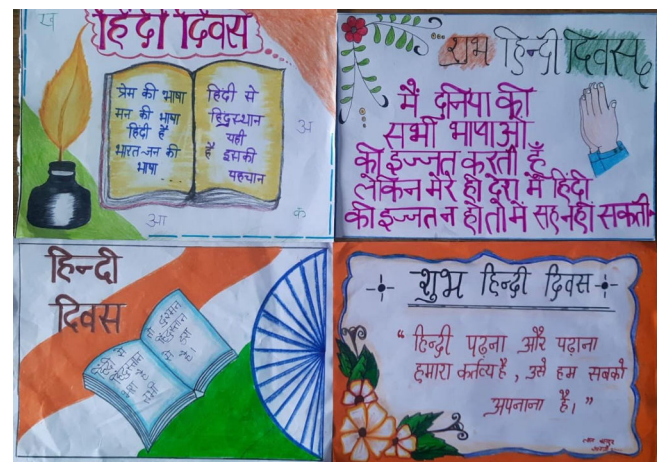 ख
हिंदी दिवस
प्रेम की भाषा
मन की भाषा
हिंदी है
भारत-जन की
भाषा
हिंदी से
हिंदुस्थान
यही
है इसकी
पहचान
अ
आ
क
शुभ हिन्दी दिवस
मैं दुनिया की
सभी भाषाओं
की इज्जत करती हूँ
लेकिन मेरे ही देश में हिंदी
की इज्जत न हो तो मैं सह नहीं सकती
हिन्दी
दिवस
शुभ हिन्दी दिवस
“हिन्दी पढ़ना और पढ़ाना
हमारा कर्तव्य है, उसे हम सबको
अपनाना है।”